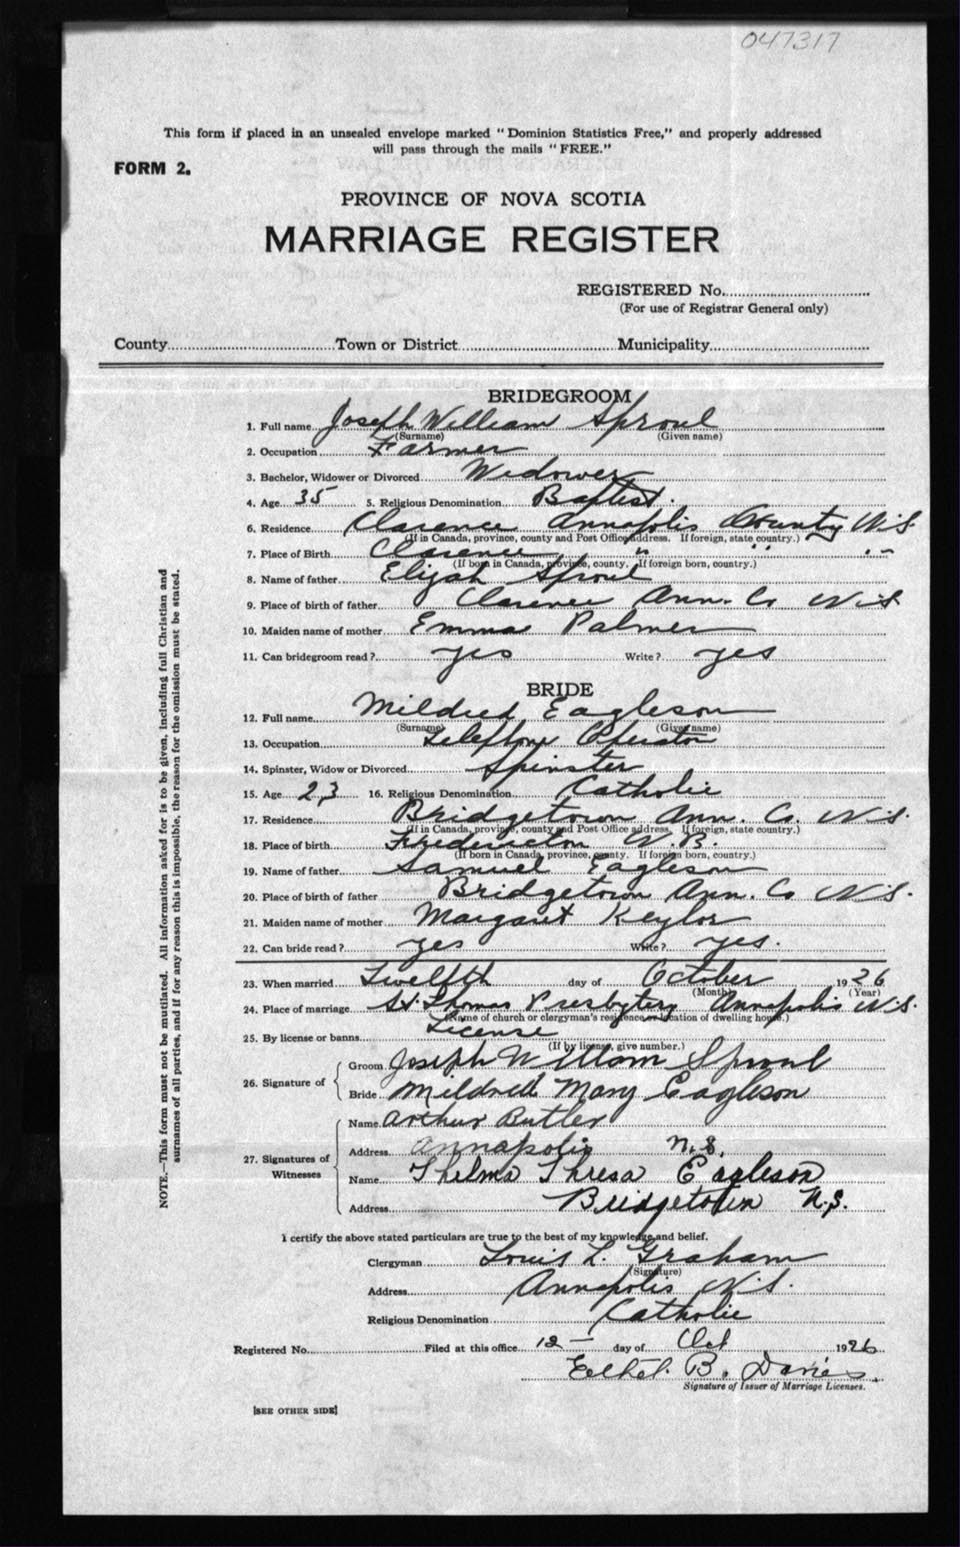 047317
This form if placed in an unsealed envelope marked "Dominion Statistics Free," and properly addressed
will pass through the mails "FREE."
FORM 2.
PROVINCE OF NOVA SCOTIA
MARRIAGE REGISTER
REGISTERED No.
(For use of Registrar General only)
County Town or District Municipality
BRIDEGROOM
1. Full name Joseph William Sproul
(Surname) (Given name)
2. Occupation Farmer
3. Bachelor, Widower or Divorced Widower
4. Age 35 5. Religious Denomination Baptist.
6. Residence Clarence Annapolis County N.S
(If in Canada, province, county and Post Office address. If foreign, state country.)
7. Place of Birth Clarence " " "
(If born in Canada, province, county. If foreign born, country.)
8. Name of father Elijah Sproul
9. Place of birth of father Clarence Ann. Co N.S
10. Maiden name of mother Emma Palmer
11. Can bridegroom read? yes Write? yes
BRIDE
12. Full name Mildred Eagleson
(Surname) (Given name)
13. Occupation Telephone Operator
14. Spinster, Widow or Divorced Spinster
15. Age 23 16. Religious Denomination Catholic
17. Residence Bridgetown Ann. Co. N.S.
(If in Canada, province, county and Post Office address. If foreign, state country.)
18. Place of birth Fredericton N.B.
(If born in Canada, province, county. If foreign born, country.)
19. Name of father Samuel Eagleson
20. Place of birth of father Bridgetown Ann. Co N.S.
21. Maiden name of mother Margaret Keylor
22. Can bride read? yes Write? yes.
23. When married Twelfth day of October 1926
(Month) (Year)
24. Place of marriage St. Thomas Presbytery Annapolis N.S.
(Name of church or clergyman's residence or location of dwelling house.)
25. By license or banns License
(If by license, give number.)
26. Signature of
Groom Joseph William Sproul
Bride Mildred Mary Eagleson
27. Signatures of Witnesses
Name Arthur Butler
Address Annapolis N.S.
Name Thelma Thresa Eagleson
Address Bridgetown N.S.
I certify the above stated particulars are true to the best of my knowledge and belief.
Clergyman Louis L. Graham
(Signature)
Address Annapolis N.S.
Religious Denomination Catholic
Registered No. Filed at this office 12 day of Oct 1926
Ethel B. Davies.
Signature of Issuer of Marriage Licenses.
[SEE OTHER SIDE]
NOTE.—This form must not be mutilated. All information asked for is to be given, including full Christian and
surnames of all parties, and if for any reason this is impossible, the reason for the omission must be stated.